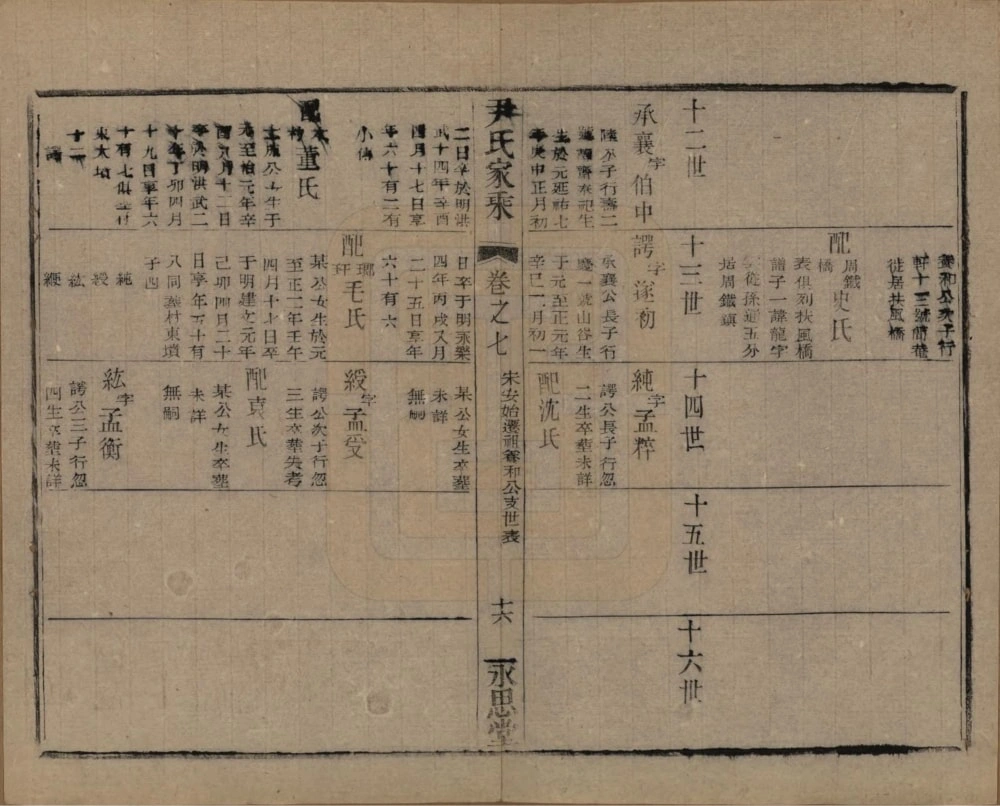 十二世
十三世
十四世
十五世
十六世
配史氏
周鐵
橋
表俱列扶風橋
譜子一諱龍字
從孫迺五分
居周鐵鎮
徙居扶風橋
承襄字伯中
子行壽二
生於元延祐七
年庚申正月初
二日卒於明洪
武十四年辛酉
四月十七日享
年六十有二有
小傳
配董氏
公女生于
元至治元年辛
酉九月十二日
卒於明洪武二
十年丁卯四月
十九日享年六
十有七俱塟村
東大墳
子一
諤
諤字遂初
承襄公長子行
慶一號山谷生
于元至正元年
辛巳一月初一
日卒于明永樂
四年丙戌又月
二十五日享年
六十有六
配毛氏
瑯玕
某公女生於元
至正二年壬午
四月十七日卒
于明建文元年
己卯四月二十
日享年五十有
八同塟村東墳
子四
純
綬
紘
純字孟粹
諤公長子行忽
二生卒塟未詳
配沈氏
某公女生卒塟
未詳
無嗣
綬字孟受
諤公次子行忽
三生卒塟失考
配袁氏
某公女生卒塟
未詳
無嗣
紘字孟衡
諤公三子行忽
四生卒塟未詳
尹氏家乘
卷之七
宋安始遷祖蓉和公支世表
十六
永思堂